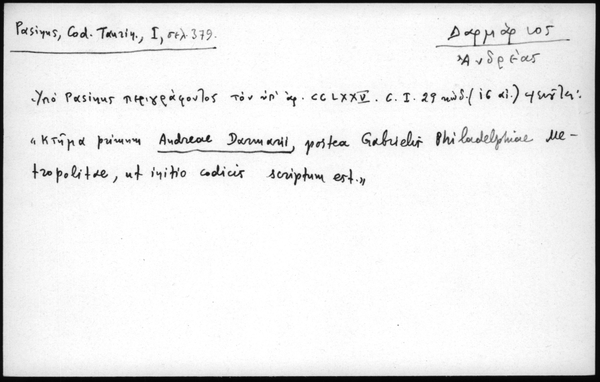 Pasinus, Cod. Taurin., I, σελ. 379.
Δαρμάριος
Ἀνδρέας
Ὑπὸ Pasinus περιγράφοντος τὸν ὑπ' ἀρ. CCLXXV. C. I. 29 κώδ. (16 αἰ.)
« Κτῆμα primum Andreae Darmarii, postea Gabrielis Philadelphiae Me-
tropolitae, ut initio codicis scriptum est.»